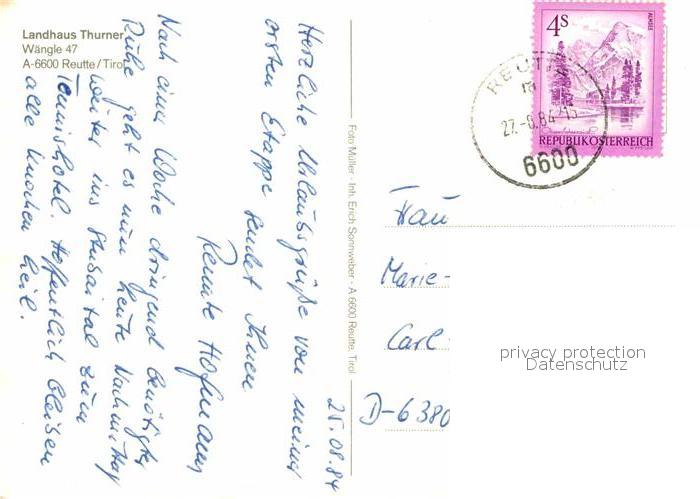 Landhaus Thurner
Wängle 47
A-6600 Reutte/Tirol
25.08.84
Herzliche Urlaubsgrüße von meiner
ersten Etappe sendet Ihnen
Renate Hofmann
Nach einer Woche dringend benötigter
Ruhe geht es nun heute Nachmittag
weiter ins Stubaital zum
Tennishotel. Hoffentlich bleiben
alle Knochen heil.
Foto Müller - Inh. Erich Sonnweber - A 6600 Reutte, Tirol
4s
ALMSEE
REPUBLIK ÖSTERREICH
REUTTE
27.-8.84-15
6600
Frau
Marie-
Carl
D-6380
privacy protection
Datenschutz